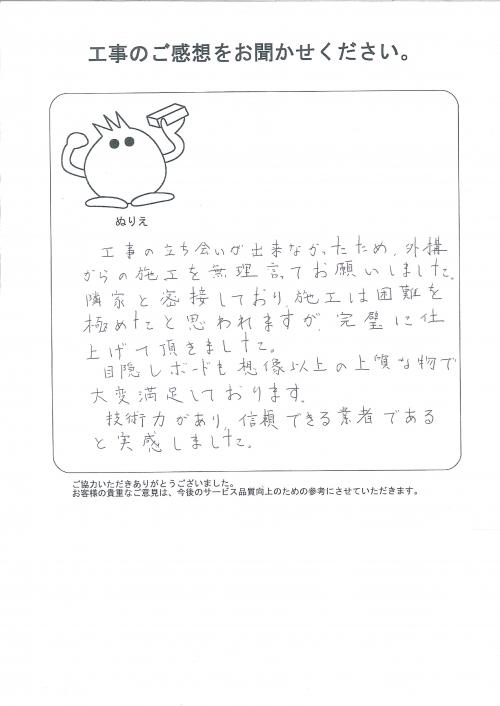 工事のご感想をお聞かせください。
ぬりえ
工事の立ち会いが出来なかったため、外構
からの施工を無理言ってお願いしました。
隣家と密接しており、施工は困難を
極めたと思われますが、完璧に仕
上げて頂きました。
目隠しボードも想像以上の上質な物で
大変満足しております。
技術力があり、信頼できる業者である
と実感しました。
ご協力いただきありがとうございました。
お客様の貴重なご意見は、今後のサービス品質向上のための参考にさせていただきます。